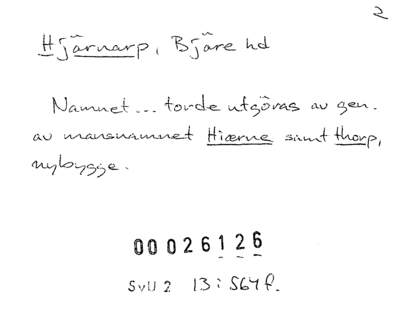 2
Hjärnarp, Bjäre hd
Namnet... torde utgöras av gen.
av mansnamnet Hiærne samt thorp,
nybygge.
00026126
SvU 2 13:564 f.